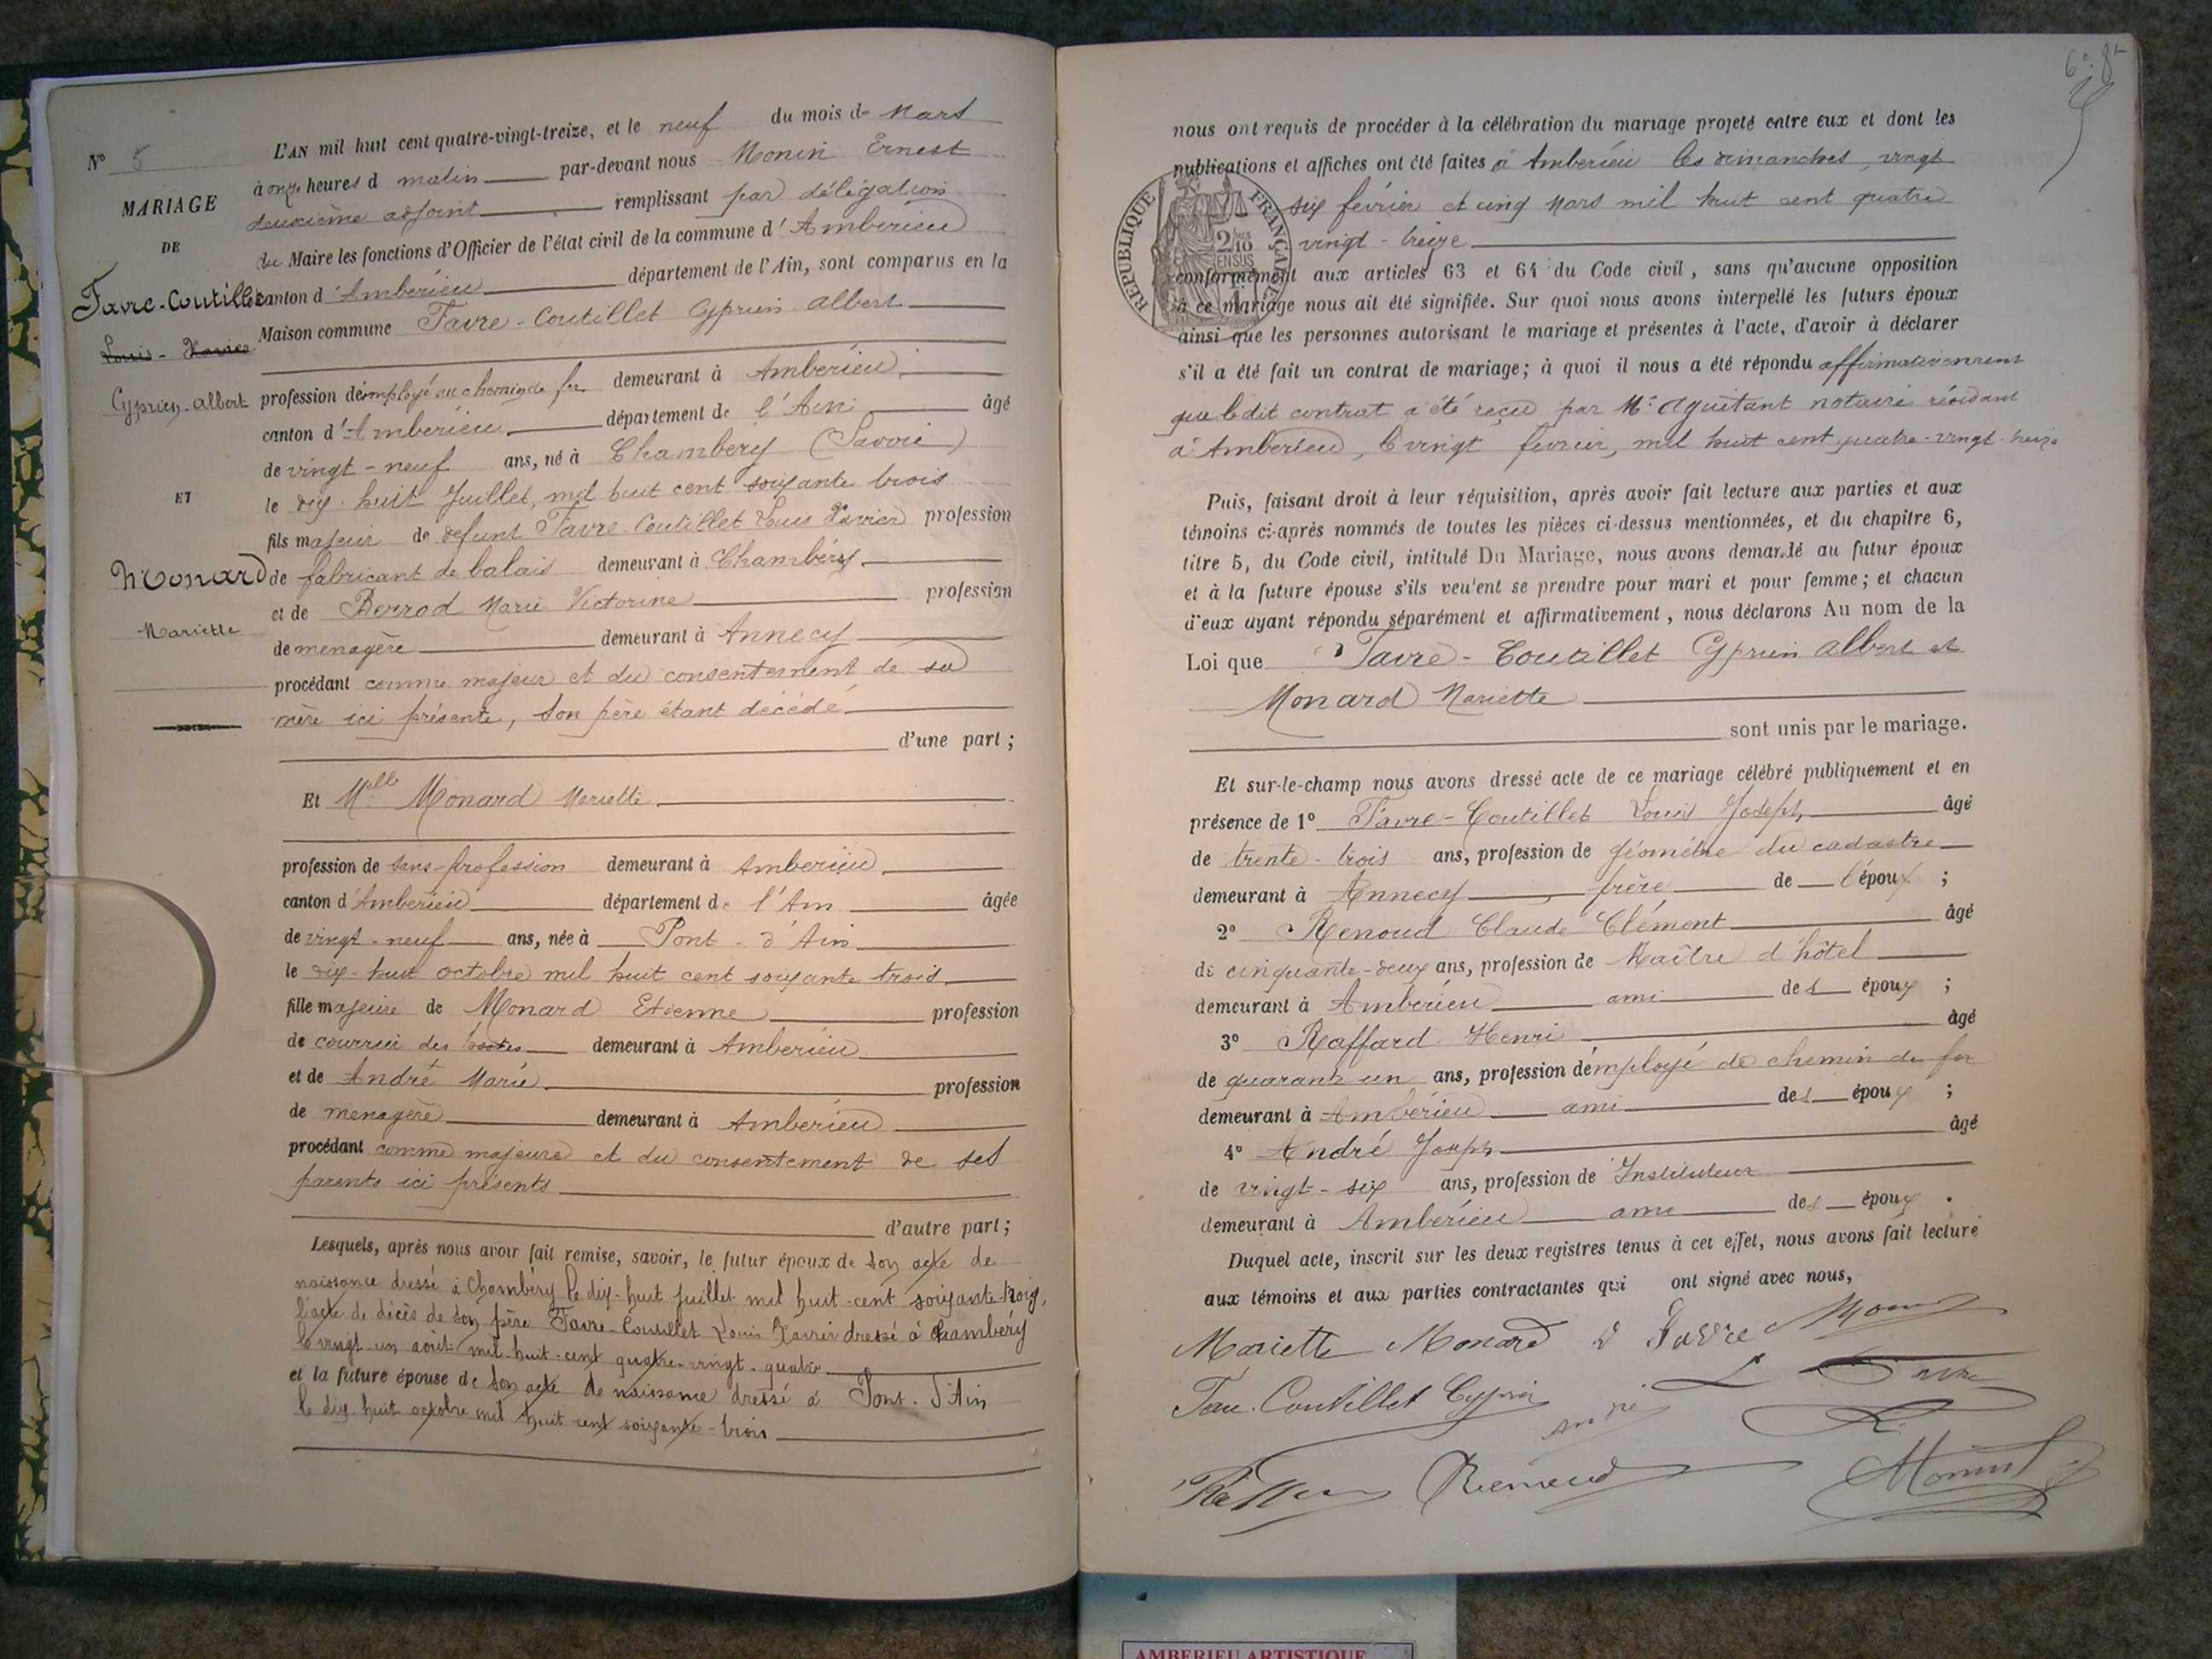 N° 5
MARIAGE
DE
Favre-Coutillet
Louis - Xavier
Cyprien-Albert
ET
Monard
Mariette
L'AN mil huit cent quatre-vingt-treize, et le neuf du mois de Mars
à onze heures d matin par-devant nous Monin Ernest
deuxième adjoint remplissant par délégation
du Maire les fonctions d'Officier de l'état civil de la commune d'Ambérieu
canton d'Ambérieu département de l'Ain, sont comparus en la
Maison commune Favre-Coutillet Cyprien Albert
profession d'employé au chemin de fer demeurant à Ambérieu
canton d'Ambérieu département de l'Ain âgé
de vingt-neuf ans, né à Chambéry (Savoie)
le dix-huit Juillet, mil huit cent soixante trois
fils majeur de défunt Favre-Coutillet Louis Xavier profession
de fabricant de balais demeurant à Chambéry
et de Berrod Marie Victorine profession
de menagère demeurant à Annecy
procédant comme majeur et du consentement de sa
mère ici présente, son père étant décédé
d'une part ;
Et Mlle Monard Mariette
profession de sans profession demeurant à Ambérieu
canton d'Ambérieu département de l'Ain âgée
de vingt-neuf ans, née à Pont-d'Ain
le dix-huit octobre mil huit cent soixante trois
fille majeure de Monard Etienne profession
de courrier des postes demeurant à Ambérieu
et de André Marie profession
de menagère demeurant à Ambérieu
procédant comme majeure et du consentement de ses
parents ici présents
d'autre part ;
Lesquels, après nous avoir fait remise, savoir, le futur époux de son acte de
naissance dressé à Chambéry le dix-huit juillet mil huit-cent soixante-trois,
l'acte de décès de son père Favre-Coutillet Louis Xavier dressé à Chambéry
le vingt-un août mil-huit-cent quatre-vingt-quatre
et la future épouse de son acte de naissance dressé à Pont-d'Ain
le dix huit octobre mil huit cent soixante-trois
nous ont requis de procéder à la célébration du mariage projeté entre eux et dont les
publications et affiches ont été faites à Ambérieu les dimanches vingt
six février et cinq Mars mil huit cent quatre
vingt-treize
REPUBLIQUE FRANÇAISE
2/10
EN SUS
conformément aux articles 63 et 64 du Code civil, sans qu'aucune opposition
à ce mariage nous ait été signifiée. Sur quoi nous avons interpellé les futurs époux
ainsi que les personnes autorisant le mariage et présentes à l'acte, d'avoir à déclarer
s'il a été fait un contrat de mariage ; à quoi il nous a été répondu affirmativement
que ledit contrat a été reçu par Me Aguétant notaire résidant
à Ambérieu, le vingt février, mil huit cent quatre-vingt-treize
Puis, faisant droit à leur réquisition, après avoir fait lecture aux parties et aux
témoins ci-après nommés de toutes les pièces ci-dessus mentionnées, et du chapitre 6,
titre 5, du Code civil, intitulé Du Mariage, nous avons demandé au futur époux
et à la future épouse s'ils veulent se prendre pour mari et pour femme ; et chacun
d'eux ayant répondu séparément et affirmativement, nous déclarons Au nom de la
Loi que Favre-Coutillet Cyprien Albert et
Monard Mariette
sont unis par le mariage.
Et sur-le-champ nous avons dressé acte de ce mariage célébré publiquement et en
présence de 1° Favre-Coutillet Louis Joseph âgé
de trente-trois ans, profession de géomètre du cadastre
demeurant à Annecy frère de l'époux ;
2° Renoud Claude Clément âgé
de cinquante-deux ans, profession de Maître d'hôtel
demeurant à Ambérieu ami des époux ;
3° Raffard Henri âgé
de quarante un ans, profession d'employé de chemin de fer
demeurant à Ambérieu ami des époux ;
4° André Joseph âgé
de vingt-six ans, profession de Instituteur
demeurant à Ambérieu ami des époux .
Duquel acte, inscrit sur les deux registres tenus à cet effet, nous avons fait lecture
aux témoins et aux parties contractantes qui ont signé avec nous,
Mariette Monard Favre
Fav. Coutillet Cyprien Favre
André
Renoud Monin
AMBERIEU ARTISTIQUE